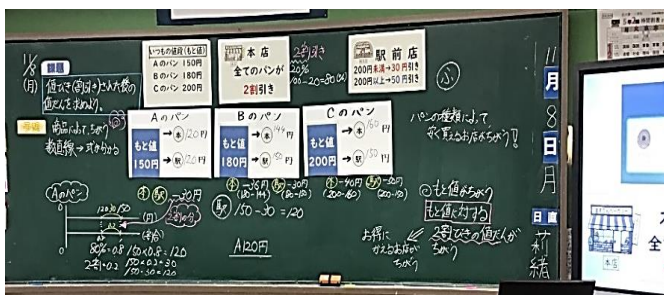 11/8
(月)
課題
値びき(割引き)された後の
値だんを求めよう。
商品によってちがう
数直線→式が分かる
いつもの値段(もと値)
Aのパン 150円
Bのパン 180円
Cのパン 200円
本店
全てのパンが
2割引き
2割引き
20%
100-20=80(%)
駅前店
200円未満→30円引き
200円以上→50円引き
Aのパン
もと値
150円
→本120円
→駅120円
Bのパン
もと値
180円
→本144円
→駅150円
Cのパン
もと値
200円
→本160円
→駅150円
パンの種類によって
安く買えるお店がちがう!!
11
月
8
日
月
日直
Aのパン
本 駅 -30円
本 -36円 駅 -30円
(180-144) (180-150)
本 -40円 駅 -50円
(200-160) (200-150)
駅 150-30=120
0
120 30 150
(円)
0
(割合)
80%=0.8 150×0.8=120
2割=0.2 150×0.2=30
150-30=120
A120円
もと値がちがう
もと値に対する
2割びきの値だんが
ちがう
お得に
かえるお店が
ちがう
本店